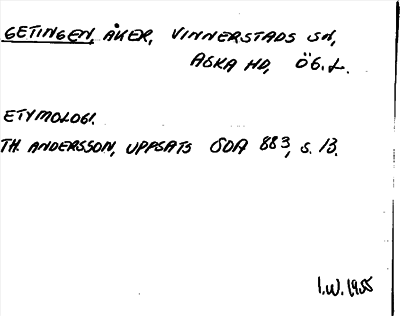 GETINGEN, ÅKER, VINNERSTADS SN,
ASKA HD, ÖG. L.
ETYMOLOGI.
TH. ANDERSSON, UPPSATS SOA 883, S. 13.
I.W. 1955